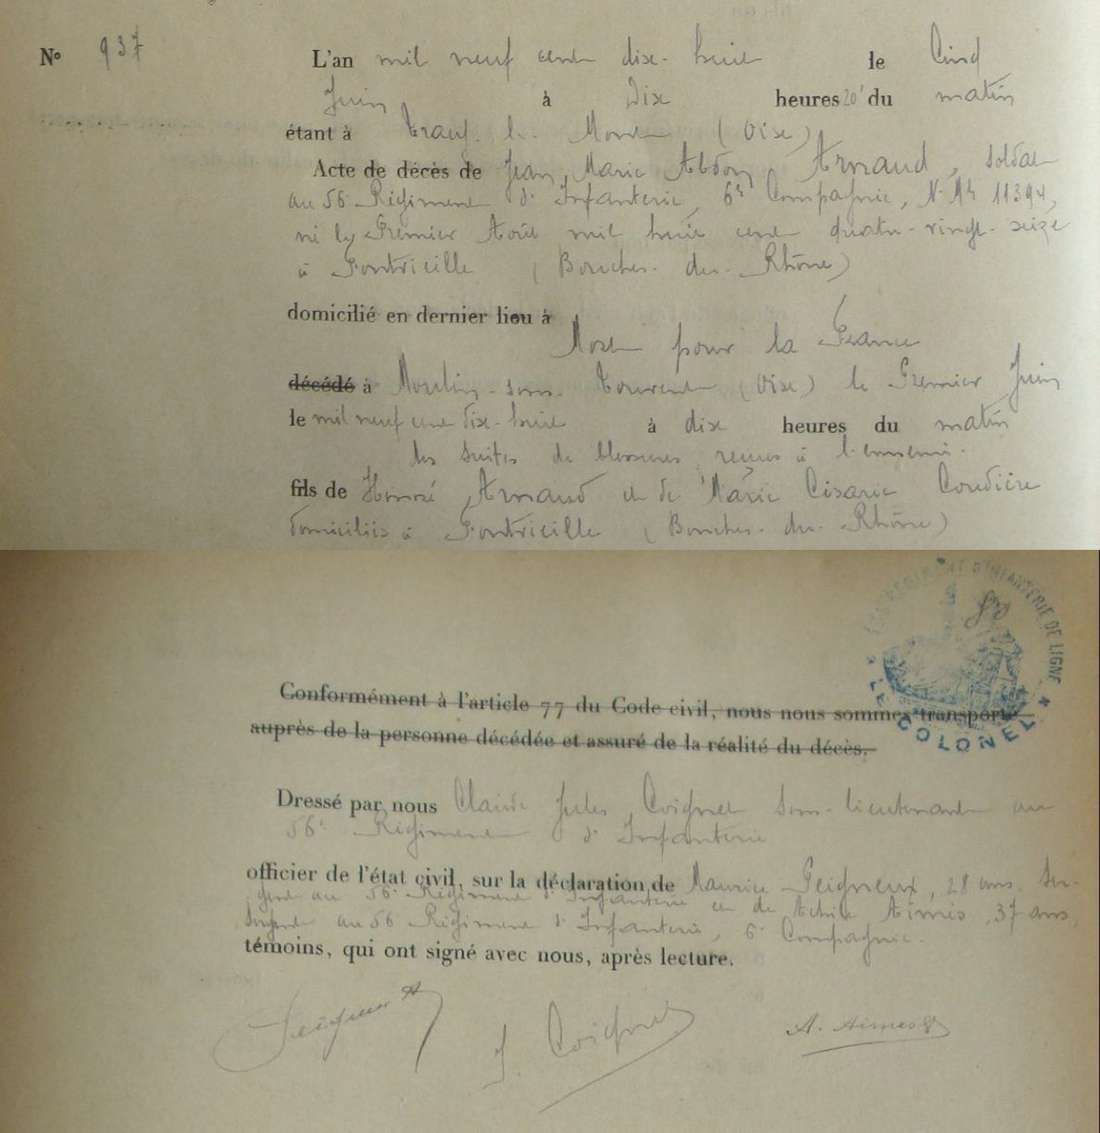 N° 937
L'an mil neuf cent dix-huit le Cinq
Juin à Dix heures 20' du matin
étant à Tracy le Mont (Oise)
Acte de décès de Jean, Marie Abdon Arnaud, soldat
au 56e Régiment d'Infanterie, 6e Compagnie, N° Mle 11394,
né le Premier Août mil huit cent quatre-vingt-seize
à Fontvieille (Bouches-du-Rhône)
domicilié en dernier lieu à
Mort pour la France
décédé à Moulin-sous-Touvent (Oise) le Premier Juin
le mil neuf cent dix-huit à dix heures du matin
des suites de blessures reçues à l'ennemi.
fils de Honoré Arnaud et de Marie Césarie Coudière
domiciliés à Fontvieille (Bouches-du-Rhône)
RÉGIMENT D'INFANTERIE DE LIGNE
LE COLONEL
Conformément à l'article 77 du Code civil, nous nous sommes transporté
auprès de la personne décédée et assuré de la réalité du décès.
Dressé par nous Claude Jules Coignet sous-lieutenant au
56e Régiment d'Infanterie
officier de l'état civil, sur la déclaration de Maurice Peigneux, 28 ans, Ser-
gent au 56e Régiment d'Infanterie et de Achile Aimés, 37 ans,
Sergent au 56 Régiment d'Infanterie, 6e Compagnie.
témoins, qui ont signé avec nous, après lecture.
Peigneux J. Coignet A. Aimes